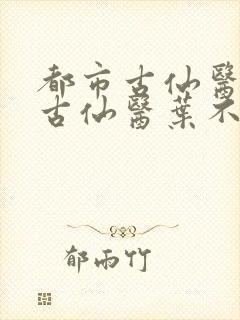 都市古仙醫
古仙醫葉不
郁雨竹